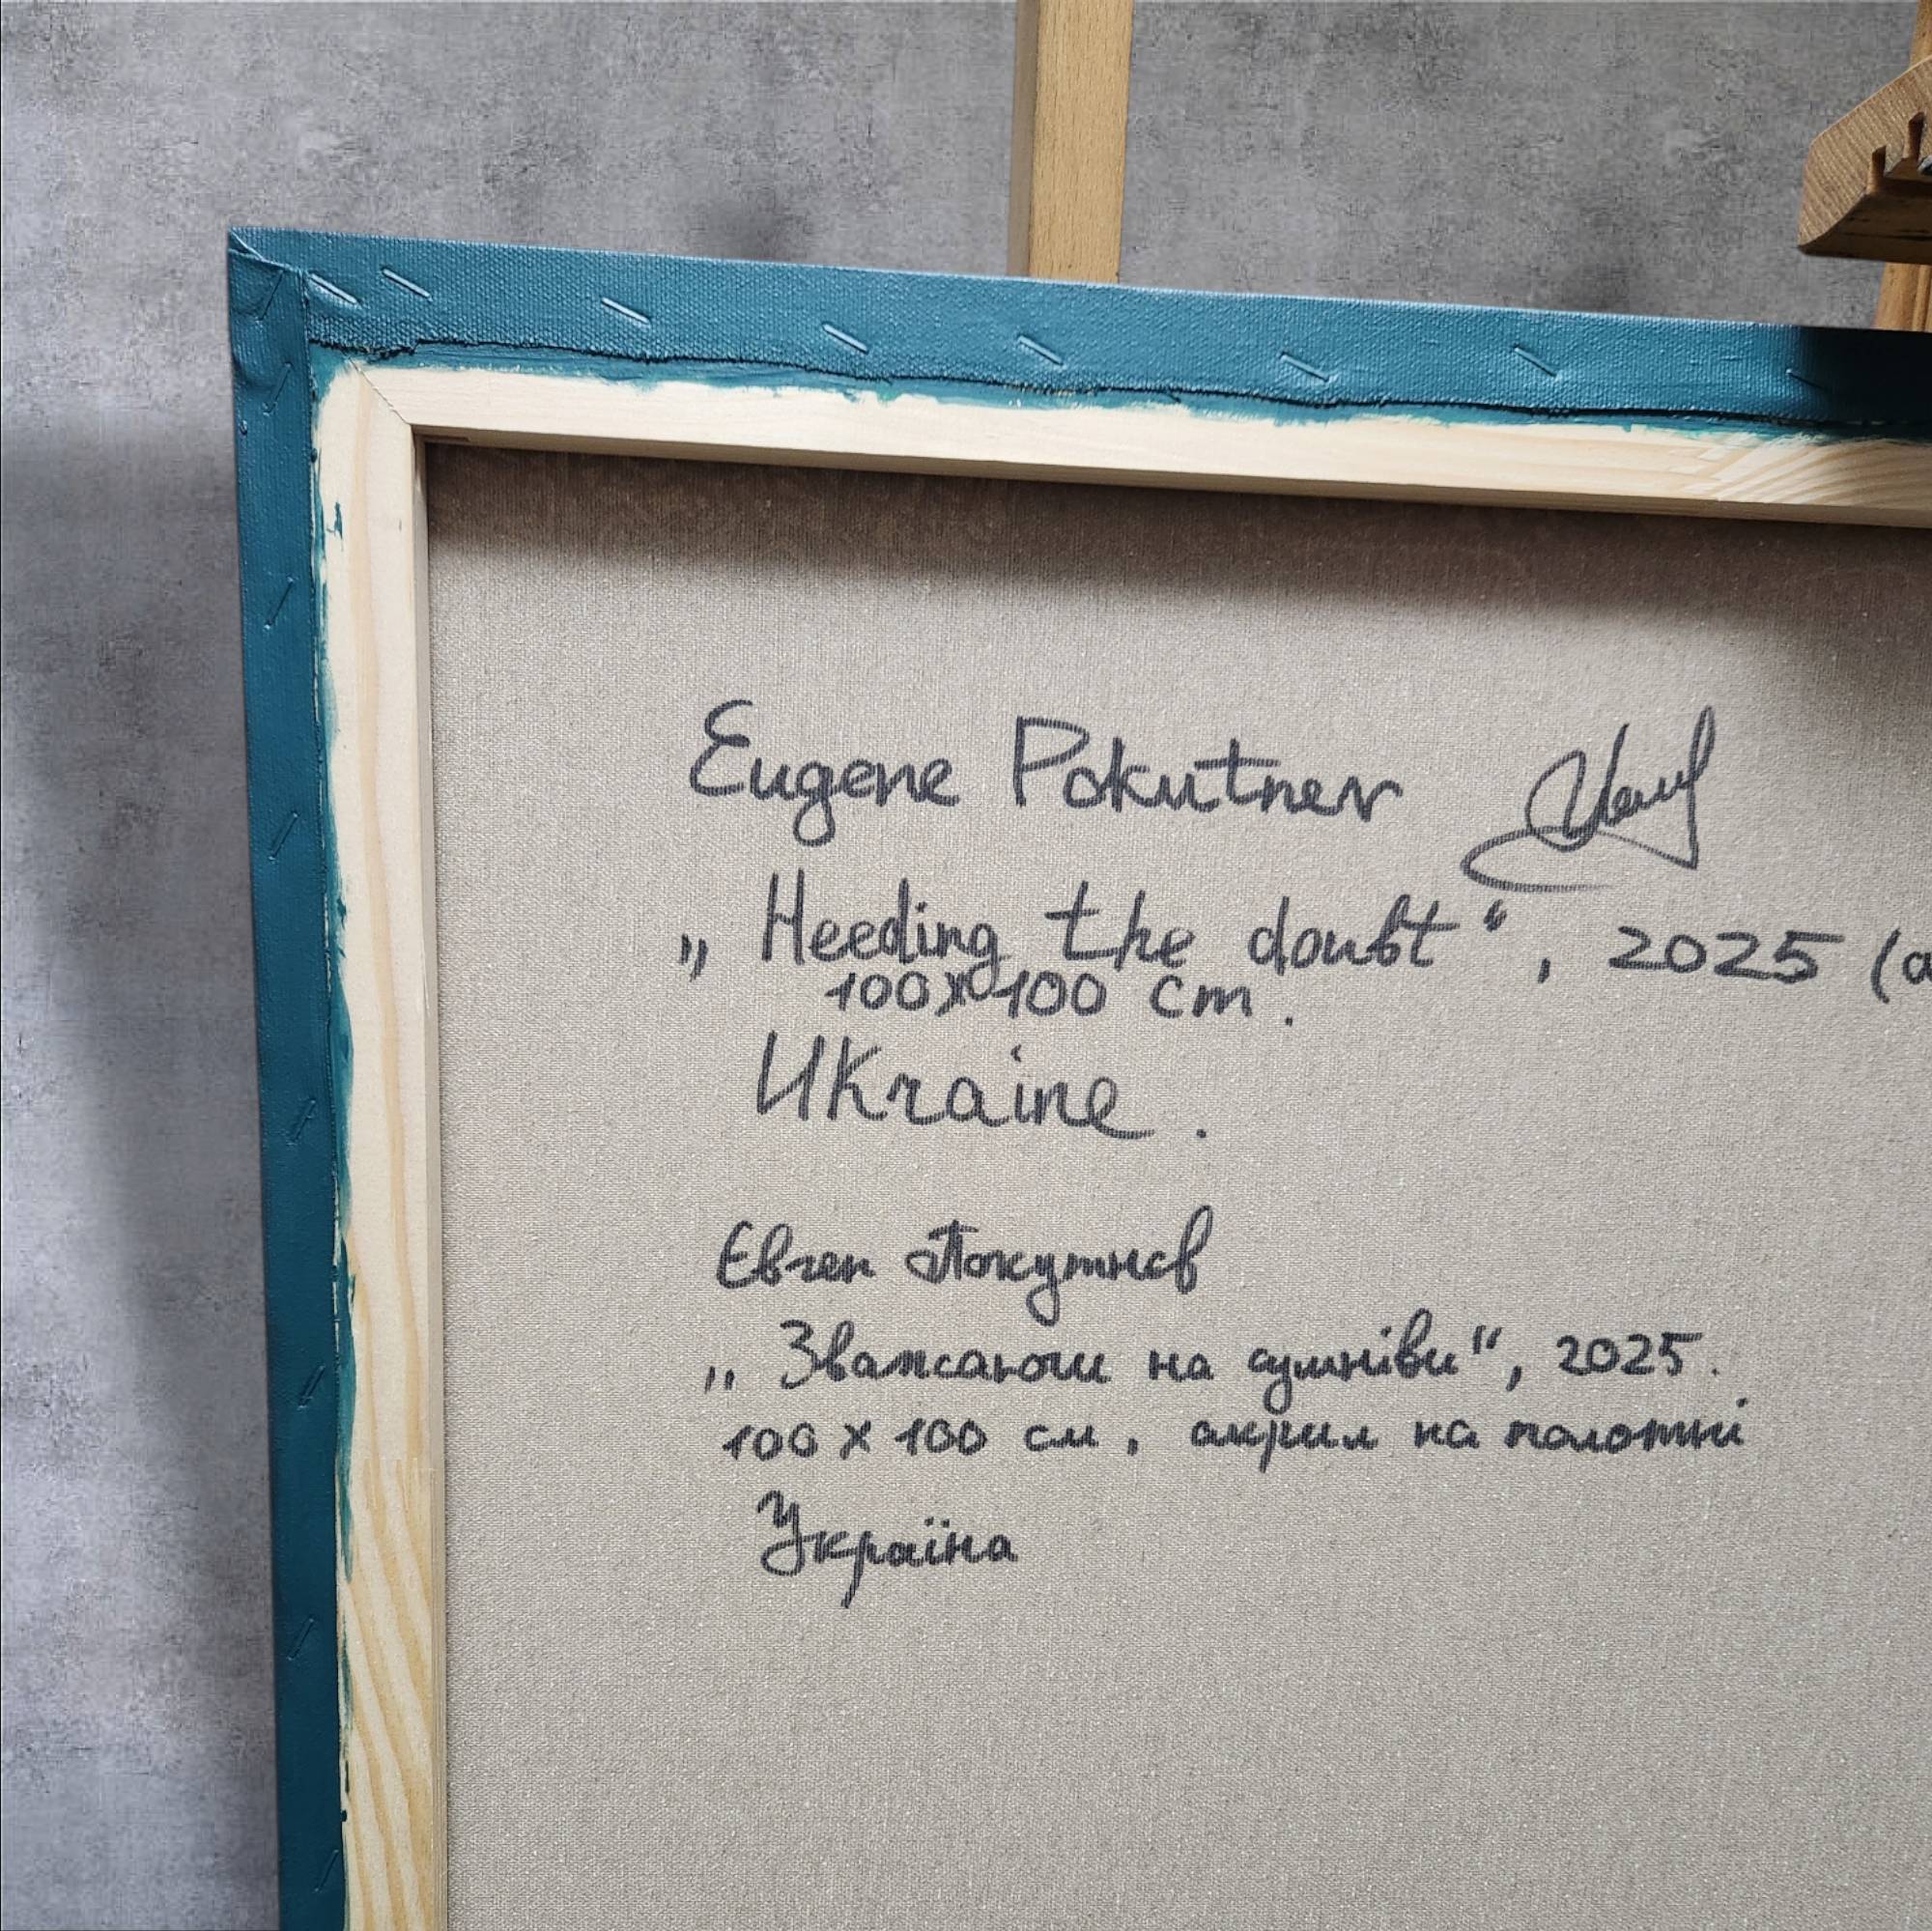 Eugene Pokutnev
„Heeding the doubt“, 2025 (a
100x100 cm.
Ukraine.
Євген Покутнєв
„Зважаючи на сумніви“, 2025.
100 x 100 см, акрил на полотні
Україна